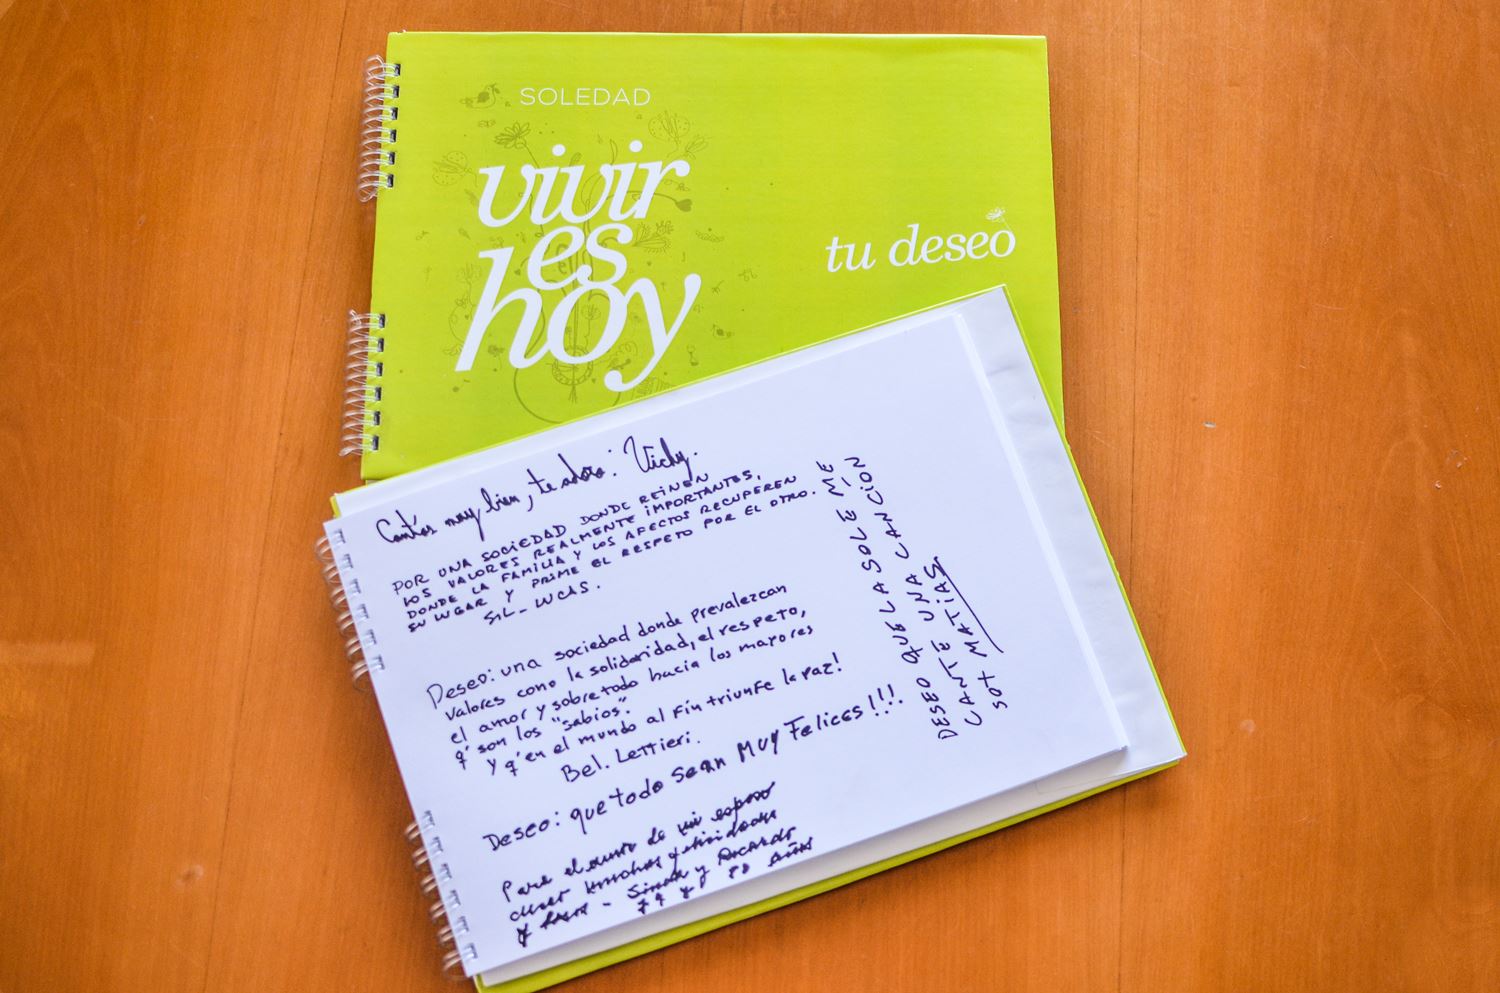 SOLEDAD
vivir
es
hoy
tu deseo
Cantás muy bien, te adoro: Vichy.
POR UNA SOCIEDAD DONDE REINEN
LOS VALORES REALMENTE IMPORTANTES,
DONDE LA FAMILIA Y LOS AFECTOS RECUPEREN
SU LUGAR Y PRIME EL RESPETO POR EL OTRO.
SIL_LUCAS.
Deseo: una sociedad donde prevalezcan
valores como la solidaridad, el respeto,
el amor y sobre todo hacia los mayores
q' son los "sabios".
y q' en el mundo al fin triunfe la paz!
Bel. Lettieri.
Deseo: que todo sean MUY Felices!!!
Para el de mi esposo
muchas felicidades
y - y Ricardo
79 y años
DESEO QUE LA SOLE ME
CANTE UNA CANCION
SOY MATIAS